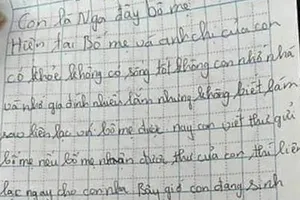 Con là Nga đây bố mẹ
Hiện tại Bố mẹ và anh chị của con
có khỏe không có sống tốt không con nhớ nhà
và nhớ gia đình nhiều lắm nhưng không biết làm
sao liên lạc với bố mẹ được nay con viết thư gửi
bố mẹ nếu bố mẹ nhận được thư của con thì liên
lạc ngay cho con nha Bây giờ con đang sinh